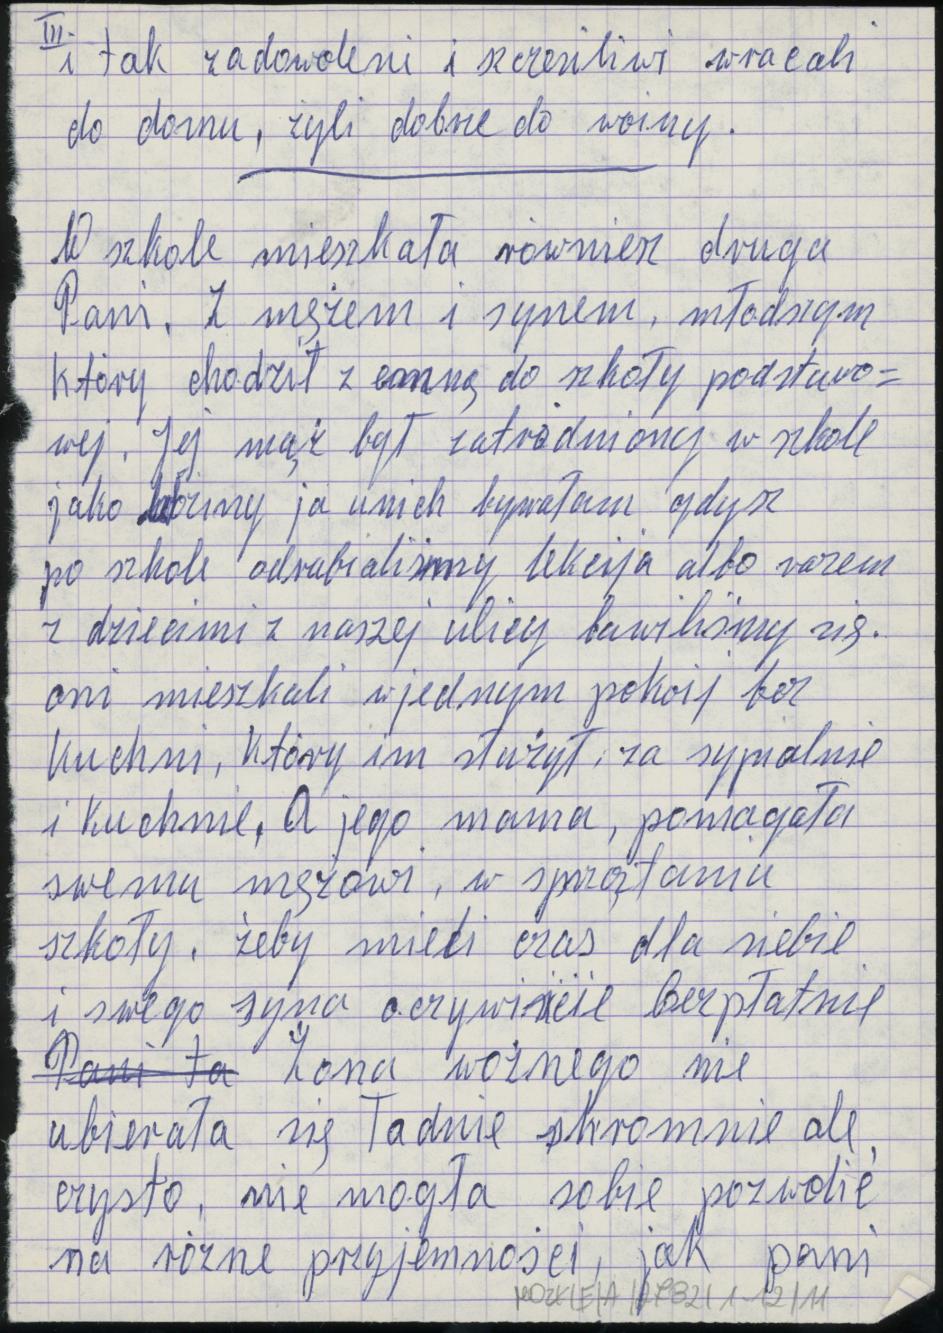 III
i tak zadowoleni i szczęśliwi wracali
do domu, żyli dobrze do wojny.
W szkole mieszkała również druga
Pani. Z mężem i synem, młodszym
który chodził z emną do szkoły podstawo=
wej. Jej mąż był zatródniony w szkole
jako woźny ja unich bywałam gdysz
po szkole odrabialiśmy lekcija albo razem
z dziećmi z naszej ulicy bawiliśmy się.
oni mieszkali wjednym pokoij bez
kuchni, który im służył, za sypialnie
i kuchnie, A jego mama, pomagała
swemu mężowi, w sprzątaniu
szkoły. żeby mieli czas dla siebie
i swego syna oczywiście bezpłatnie
Pani ta Żona woźnego nie
ubierała się ładnie skromnie ale
czysto, nie mogła sobie pozwolić
na różne przyjemności, jak pani